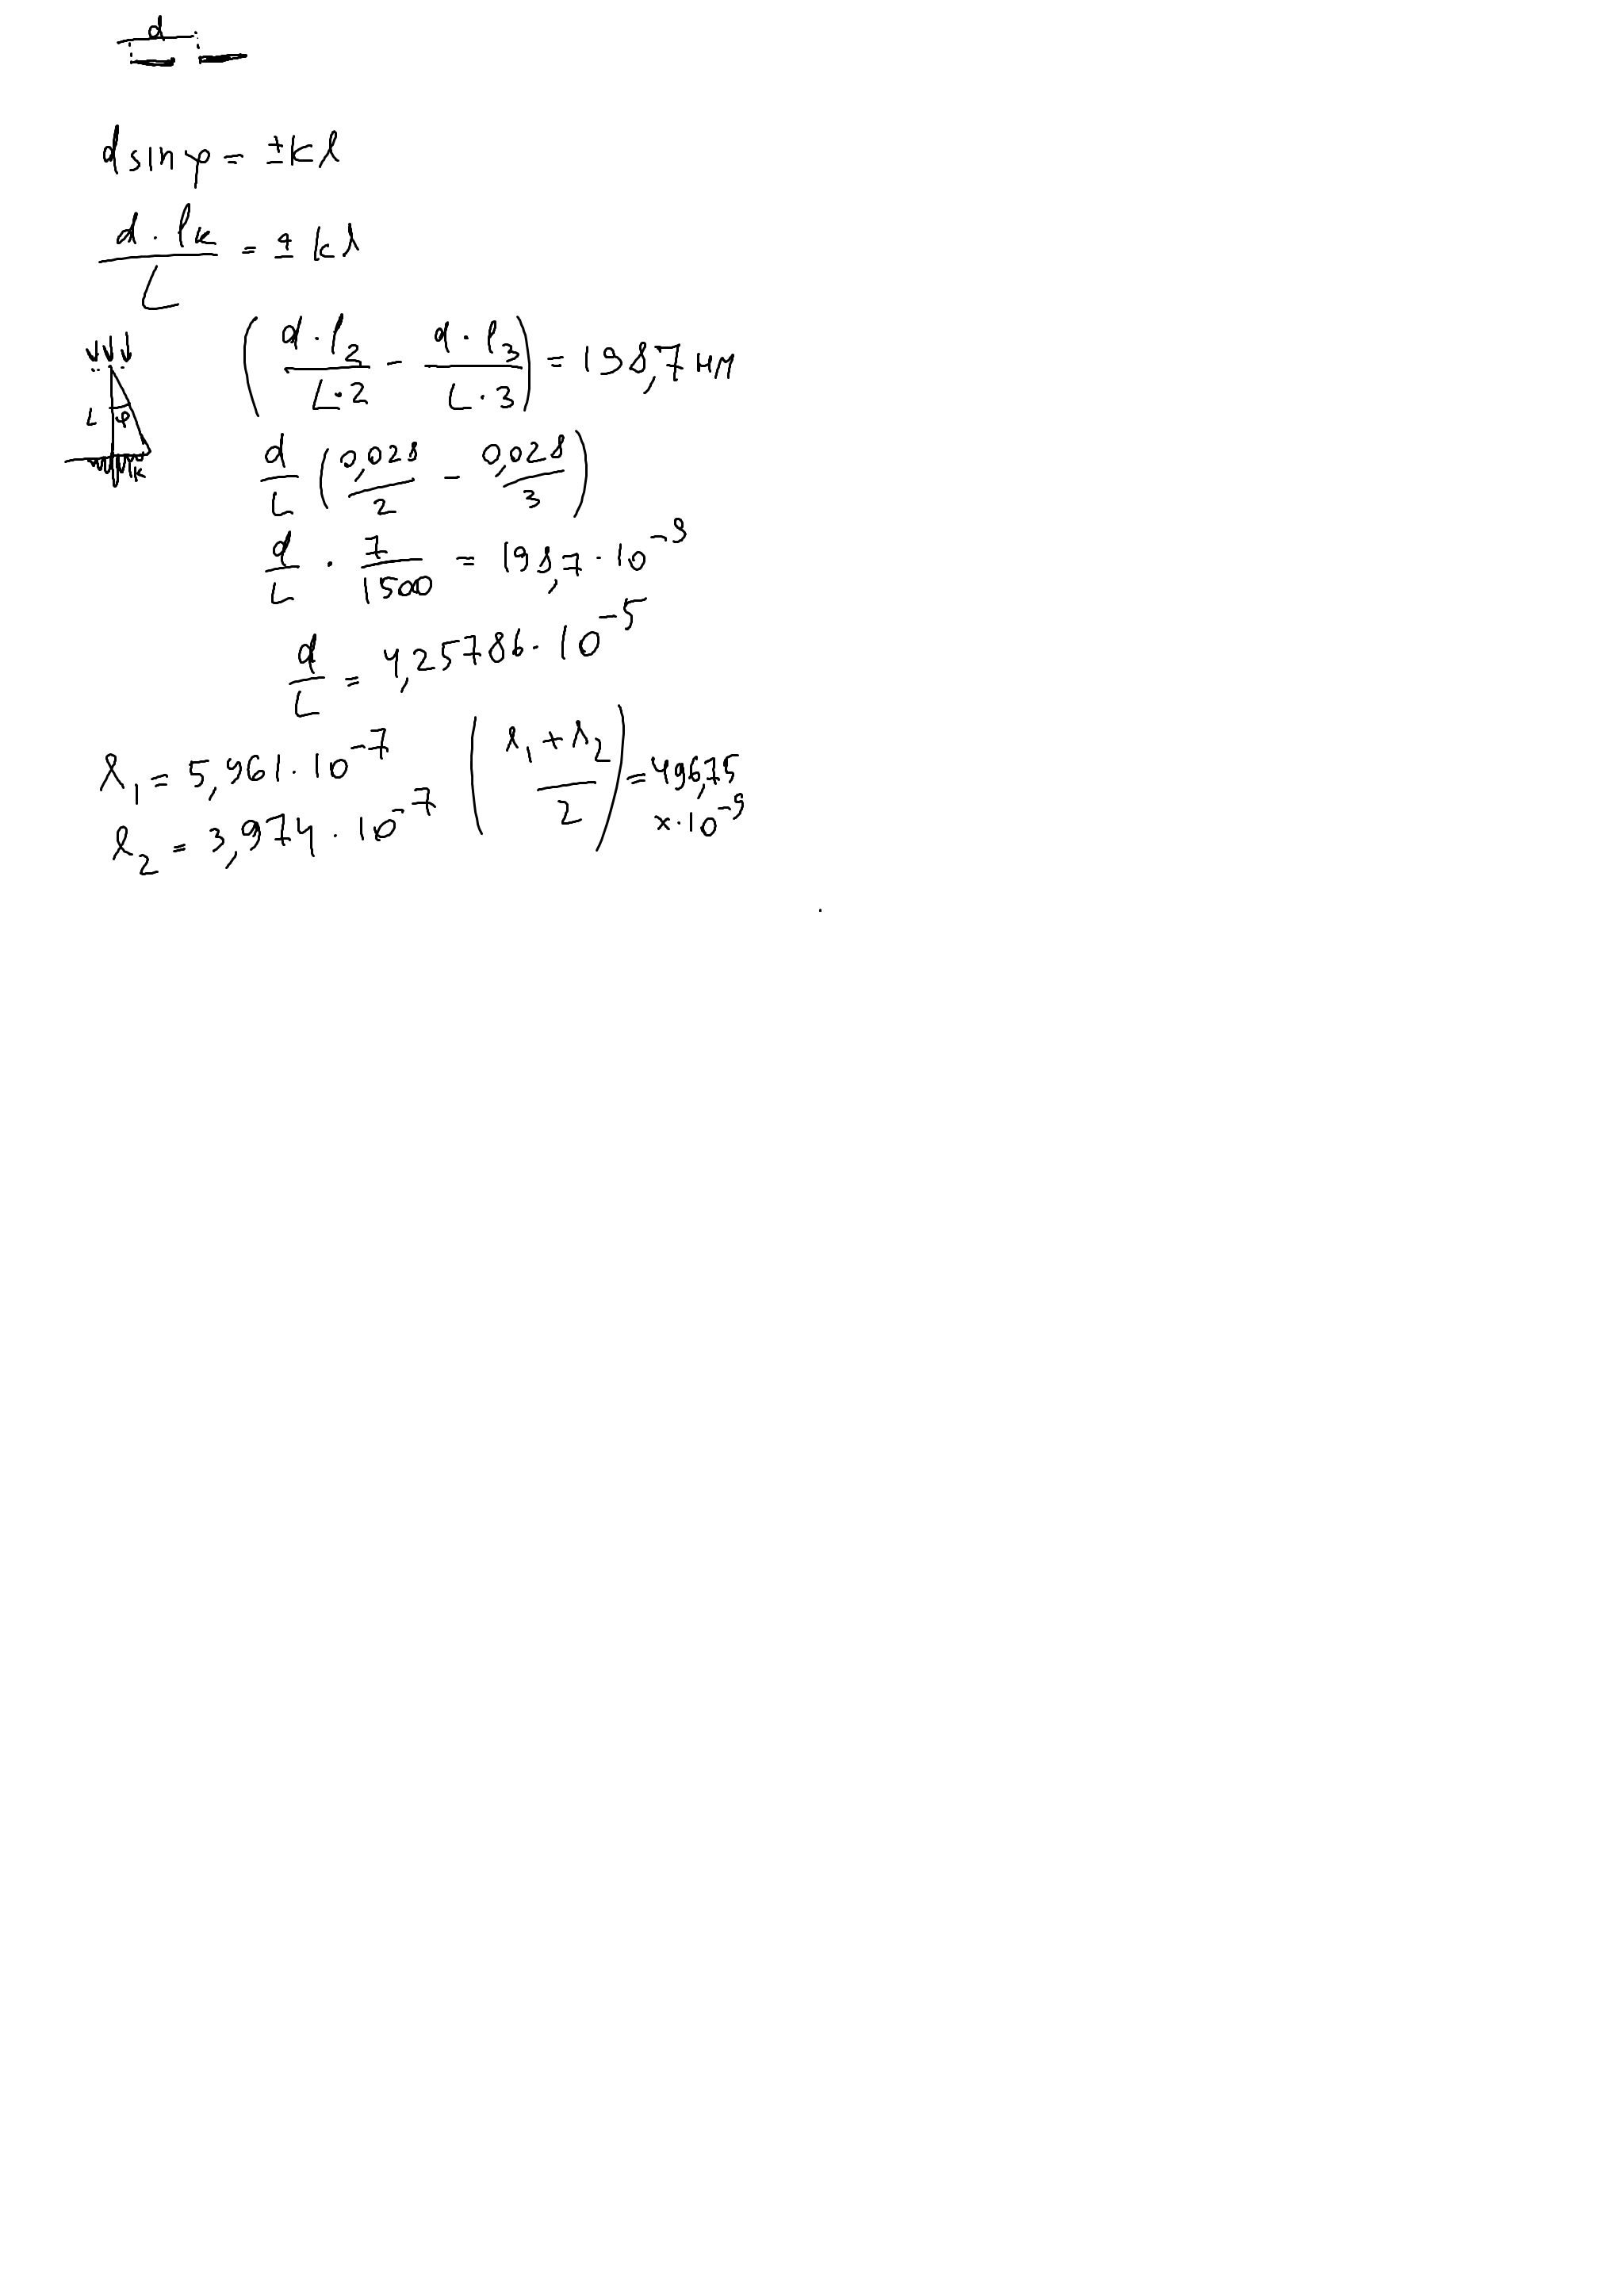 d
d sin φ = ±kλ
d · lk / L = ± kλ
(d · l2 / L · 2 - d · l3 / L · 3) = 198,7 нм
L φ
k
d / L (0,028 / 2 - 0,028 / 3)
d / L · 7 / 1500 = 198,7 · 10^-9
d / L = 4,25786 · 10^-5
λ1 = 5,961 · 10^-7
λ2 = 3,974 · 10^-7
(λ1 + λ2 / 2) = 496,75
x · 10^-9